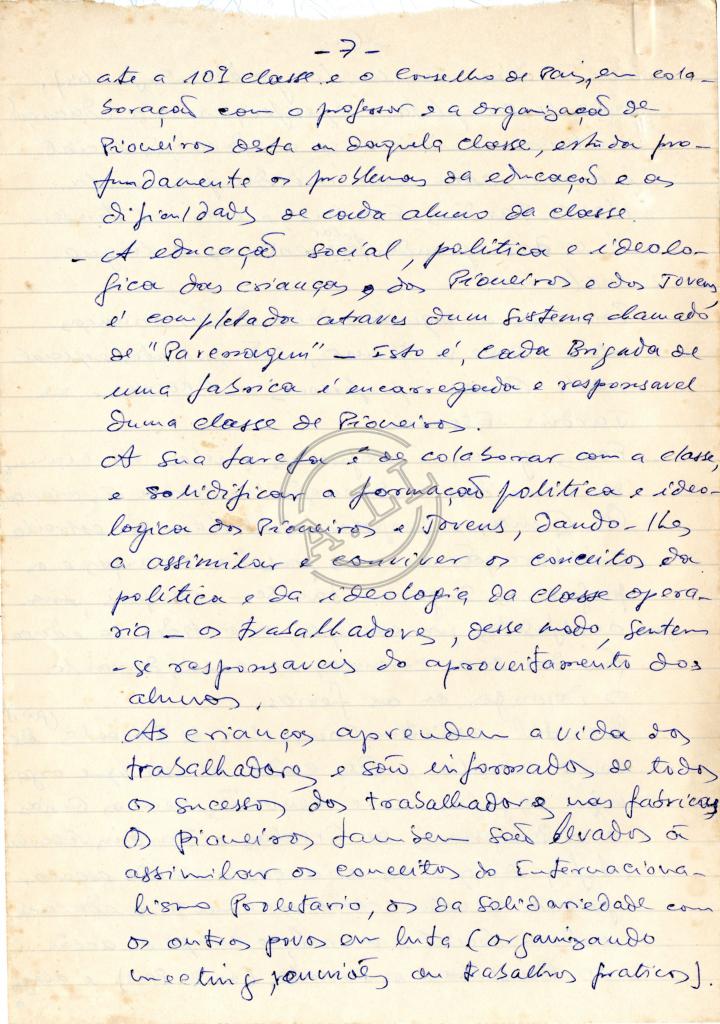 - 7 -
até a 10ª classe e o Conselho de Pais, em cola-
boração com o professor e a organização de
Pioneiros desta ou daquela classe, estuda pro-
fundamente os problemas da educação e as
dificuldades de cada aluno da classe.
- A educação social, política e ideolo-
gica das crianças, dos Pioneiros e dos Jovens,
é completada atraves dum sistema chamado
de "Paressagem" - Isto é, cada Brigada de
uma fabrica é encarregada e responsavel
duma classe de Pioneiros.
A sua tarefa é de colaborar com a classe,
e solidificar a formação política e ideo-
logica dos Pioneiros e Jovens, dando-lhes
a assimilar e conviver os conceitos da
política e da ideologia da classe opera-
ria - os trabalhadores, desse modo, sentem
-se responsaveis do aproveitamento dos
alunos.
As crianças aprendem a vida dos
trabalhadores e são informados de todos
os sucessos dos trabalhadores nas fabricas
Os pioneiros tambem são levados à
assimilar os conceitos do Internaciona-
lismo Proletario, os da Solidariedade com
os outros povos em luta (organizando
meeting, reuniões ou trabalhos praticos).
A.LL